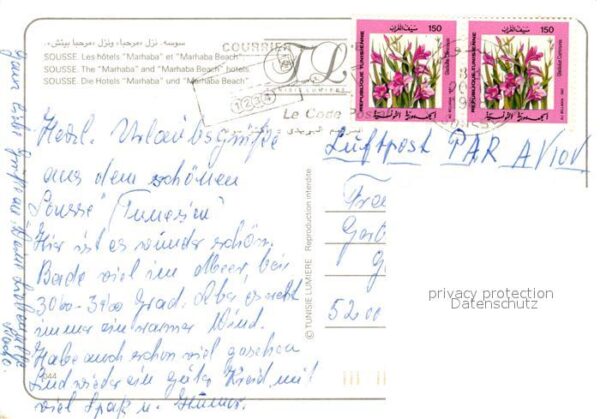 سوسة. نزل «مرحبا» ونزل «مرحبا بيتش».
SOUSSE. Les hôtels "Marhaba" et "Marhaba Beach"
SOUSSE. The "Marhaba" and "Marhaba Beach" hotels.
SOUSSE. Die Hotels "Marhaba" und "Marhaba Beach"
COURRIER
1234
Le Code
سيف الغراب 150
REPUBLIQUE TUNISIENNE
الجمهورية التونسية
سيف الغراب 150
REPUBLIQUE TUNISIENNE
الجمهورية التونسية
Luftpost PAR AVION
Herzl. Urlaubsgrüße
aus dem schönen
Sousse (Tunesien)
Hier ist es wunderschön.
Bade viel im Meer, bei
Grad. Aber es weht
immer ein warmer Wind.
Habe auch schon viel gesehen
Sind wieder ein guter Kreis, mit
viel Spaß u. Humor.
Ganz liebe Grüße an
© TUNISIE LUMIERE Reproduction interdite
Gart
5200
privacy protection
Datenschutz